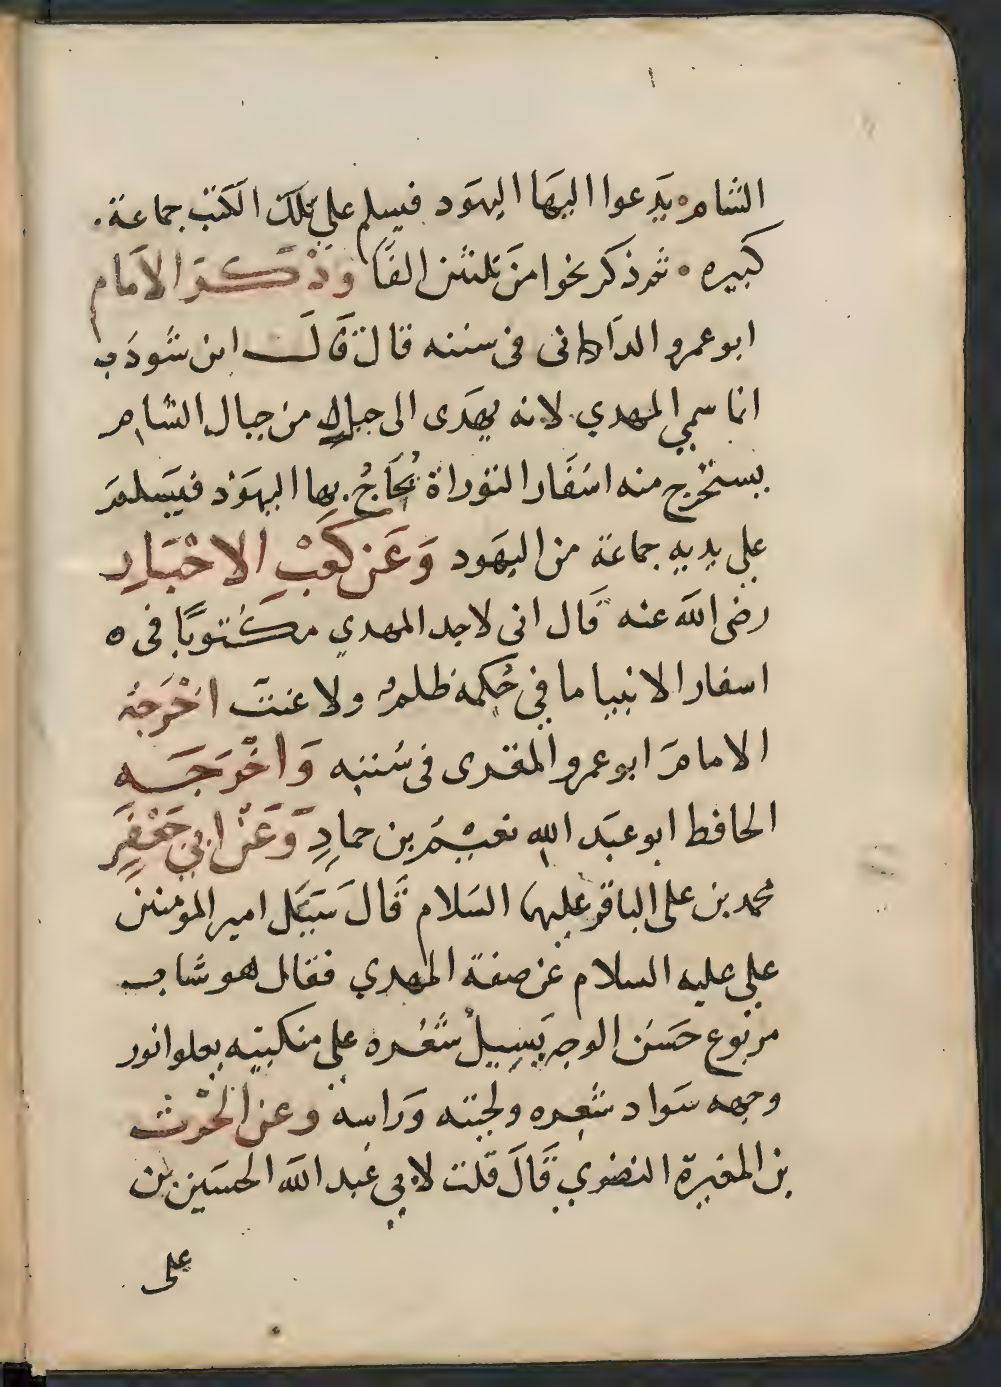 الشام يدعوا اليها اليهود فيسلم على تلك الكتب جماعة
كبيره ثم ذكر نحوا من ثلثين الفا وذكر الامام
ابو عمرو الدانى فى سننه قال قال ابن شودب
انما سمي المهدي لانه يهدى الى جبل من جبال الشام
يستخرج منه اسفار التوراة يحاج بها اليهود فيسلم
على يديه جماعة من اليهود وعن كعب الاحبار
رضى الله عنه قال انى لاجد المهدي مكتوبا فى ه
اسفار الانبيا ما في حكمه ظلم ولا عنت اخرجه
الامام ابو عمرو المقرى فى سننه واخرجه
الحافظ ابو عبد الله نعيم بن حماد وعن ابي جعفر
محمد بن على الباقر عليهما السلام قال سئل امير المومنين
علي عليه السلام عن صفة المهدي فقال هو شاب
مربوع حسن الوجه يسيل شعره على منكبيه يعلوا نور
وجهه سواد شعره ولحيته وراسه وعن الحرث
بن المغيرة النضري قال قلت لابي عبد الله الحسين بن
على